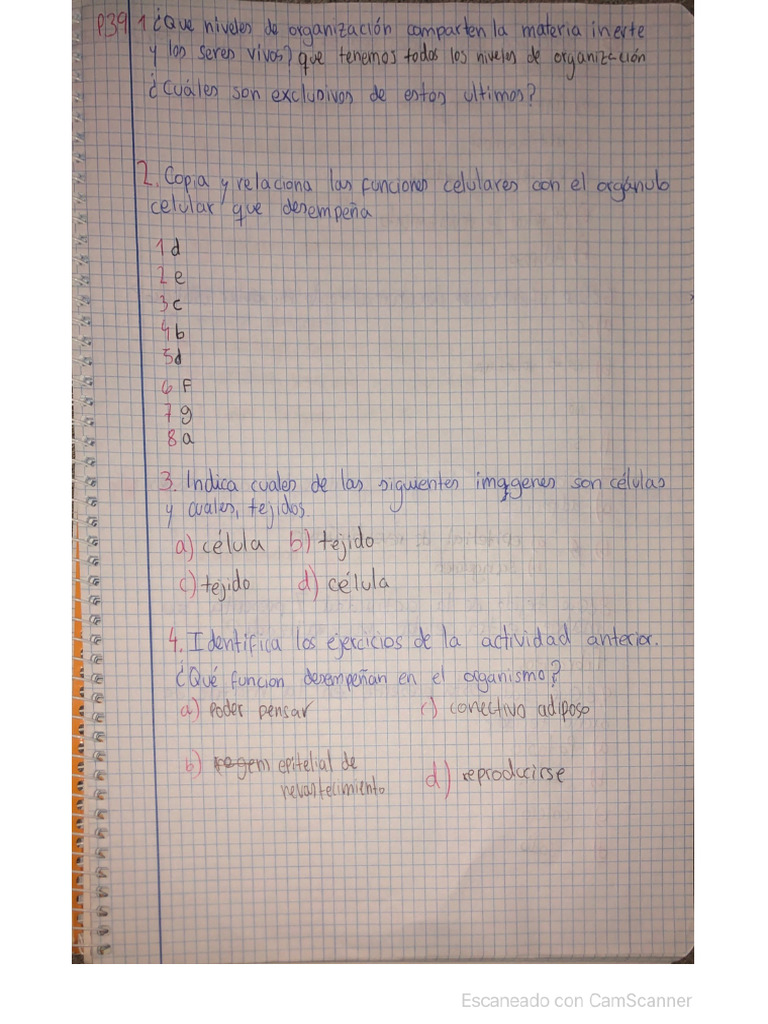 P39 1 ¿Que niveles de organización comparten la materia inerte
y los seres vivos? que tenemos todos los niveles de organización
¿Cuáles son exclusivos de estos ultimos?
2. Copia y relaciona las funciones celulares con el orgánulo
celular que desempeña
1 d
2 e
3 c
4 b
5 d
6 F
7 g
8 a
3. Indica cuales de las siguientes imágenes son células
y cuales, tejidos.
a) célula b) tejido
c) tejido d) célula
4. Identifica los ejercicios de la actividad anterior.
¿Qué funcion desempeñan en el organismo?
a) Poder pensar c) conectivo adiposo
b) epitelial de
revastecimiento d) reproducirse
Escaneado con CamScanner